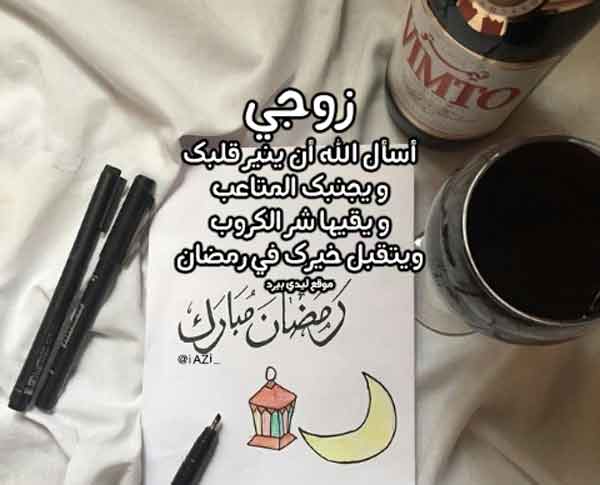 فيمتو
VIMTO
زوجي
أسأل الله أن ينير قلبك
و يجنبك المتاعب
و يقيها شر الكروب
ويتقبل خيرك في رمضان
موقع ليدي بيرد
رمضان مبارك
@iAZi_